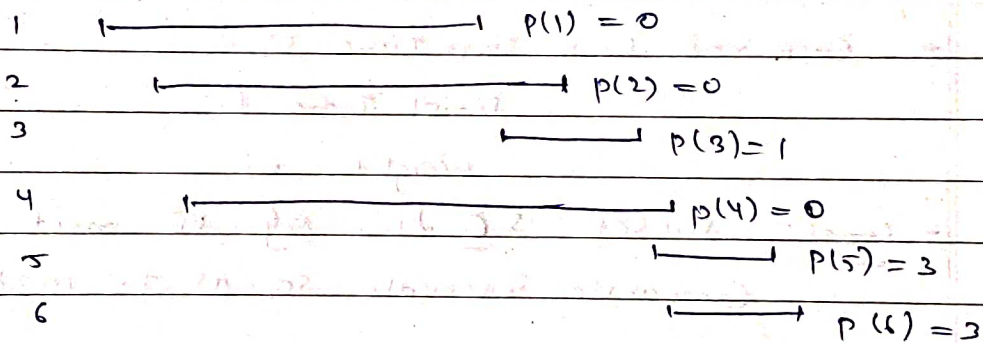 1 p(1) = 0
2 p(2) = 0
3 p(3) = 1
4 p(4) = 0
5 p(5) = 3
6 p(6) = 3